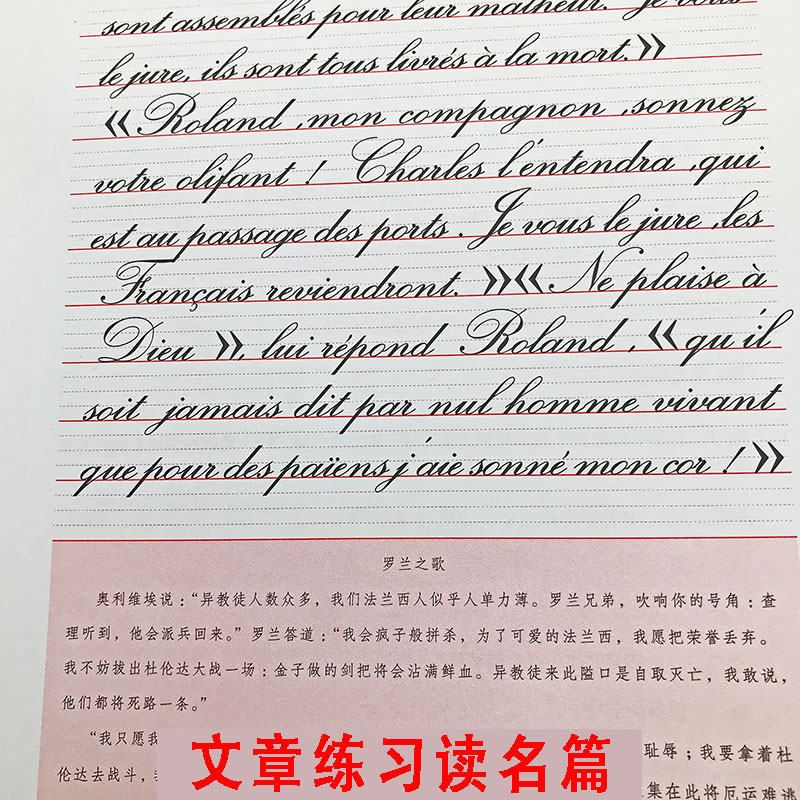 sont assemblés pour leur malheur. Je vous
le jure, ils sont tous livrés à la mort.»
«Roland ,mon compagnon ,sonnez
votre olifant ! Charles l'entendra ,qui
est au passage des ports . Je vous le jure ,les
Français reviendront. »« Ne plaise à
Dieu », lui répond Roland , « qu'il
soit jamais dit par nul homme vivant
que pour des païens j'aie sonné mon cor ! »
罗兰之歌
奥利维埃说：“异教徒人数众多，我们法兰西人似乎人单力薄。罗兰兄弟，吹响你的号角：查
理听到，他会派兵回来。”罗兰答道：“我会疯子般拼杀，为了可爱的法兰西，我愿把荣誉丢弃。
我不妨拔出杜伦达大战一场：金子做的剑把将会沾满鲜血。异教徒来此隘口是自取灭亡，我敢说，
他们都将死路一条。”
“我只愿我 耻辱；我要拿着杜
伦达去战斗， 集在此将厄运难逃
文章练习读名篇